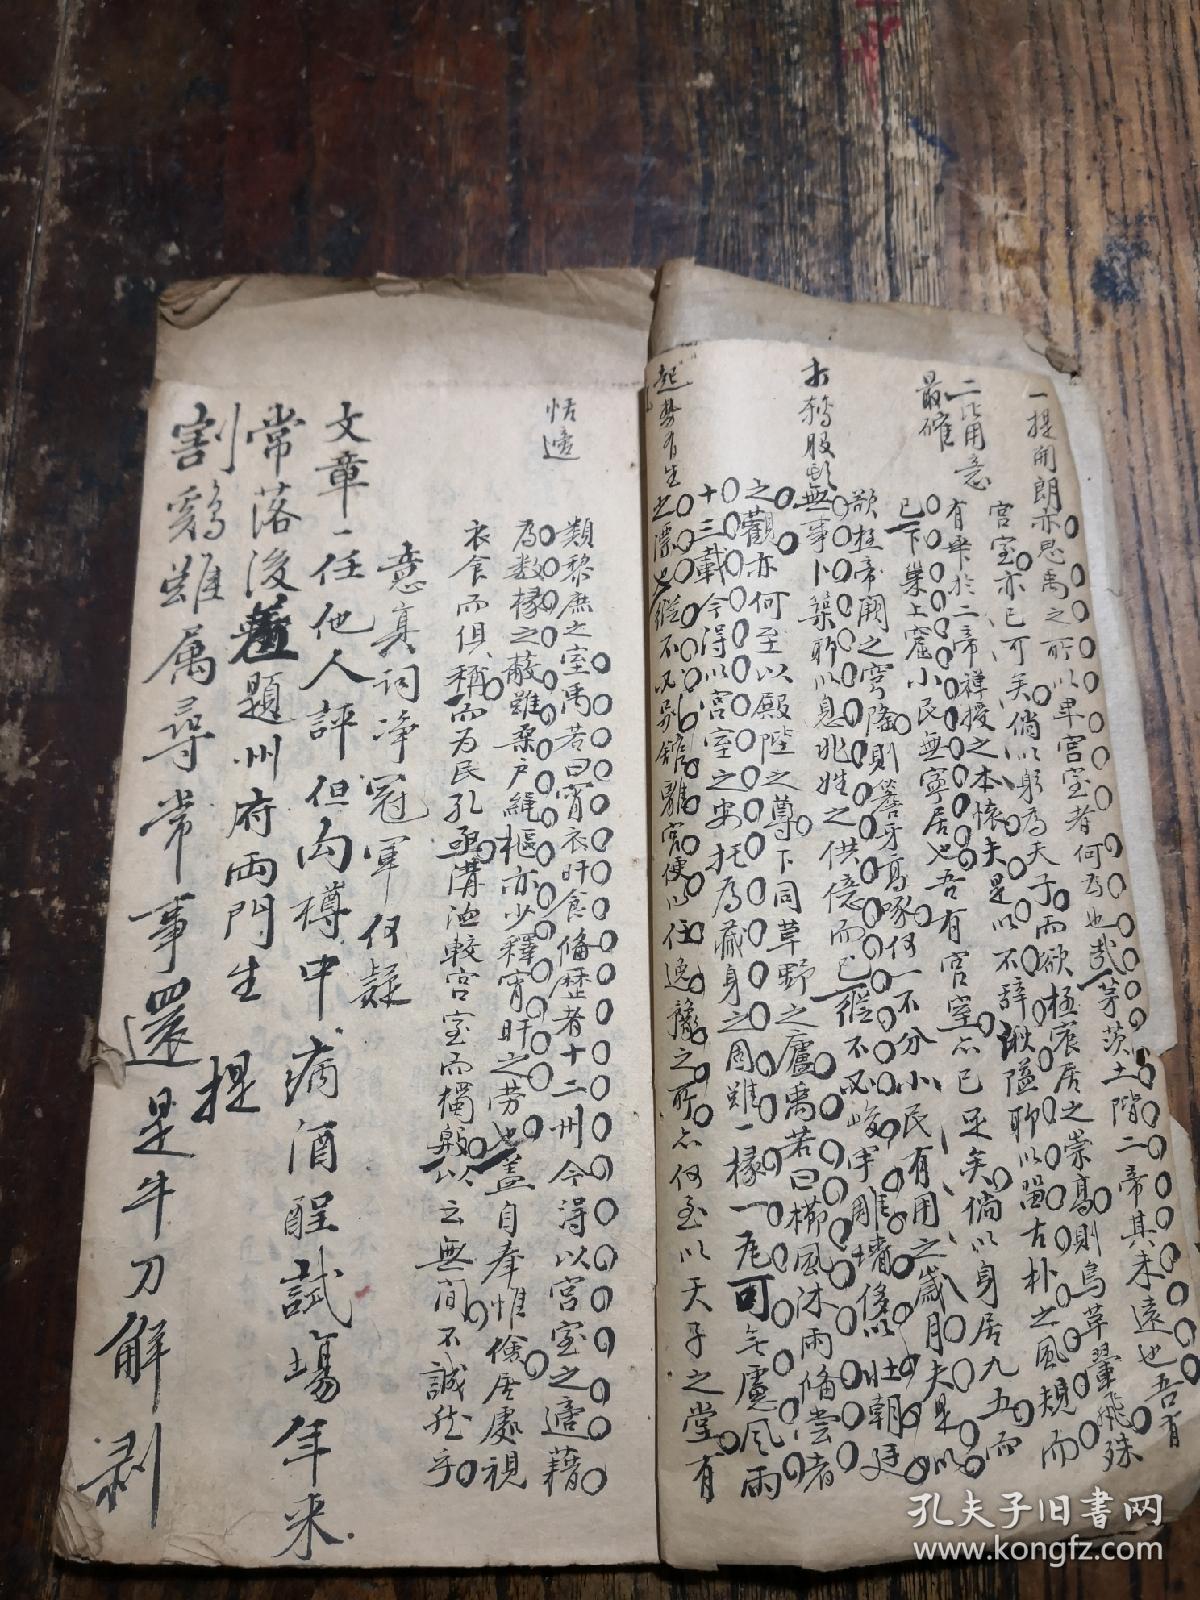 一提開朗
亦思禹之所以卑宮室者何為也哉茅茨土階二帝其未遠也吾有
宮室亦已可矣倘以躬為天子而欲極宸居之崇高則鳥革翬飛殊
二比用意
最確
有乖於二帝禪授之本懷夫是以不辭湫隘聊以留古朴之風規而
已下巢上窟小民無寧居也吾有宮室亦已足矣倘以身居九五而
欲極帝闕之穹隆則簷牙高啄何一不分小民有用之歲月夫是以
無事卜築聊以息兆姓之供億而已縱不必峻宇雕墻侈以壯朝廷
之觀亦何至以殿陛之尊下同草野之廬禹若曰櫛風沐雨備嘗者
十三載今得以宮室之安托為藏身之固雖一椽一瓦可無慮風雨
起勢有生
之漂也縱不必別館離宮便以任逸豫之所亦何至以天子之堂有
恬適
類黎庶之室禹若曰宵衣旰食備歷者十二州今得以宮室之適藉
為數椽之蔽雖桑戶繩樞亦少釋宵旰之勞也蓋自奉惟儉居處視
衣食而俱稱而為民孔亟溝洫較宮室而獨殷以云無間不誠然乎
意真詞淨冠軍何疑
文章一任他人評但向樽中病酒酲試場年来
常落後
題州府兩門生
提
割鷄雖屬尋常事還是牛刀解剥
孔夫子旧书网
www.kongfz.com